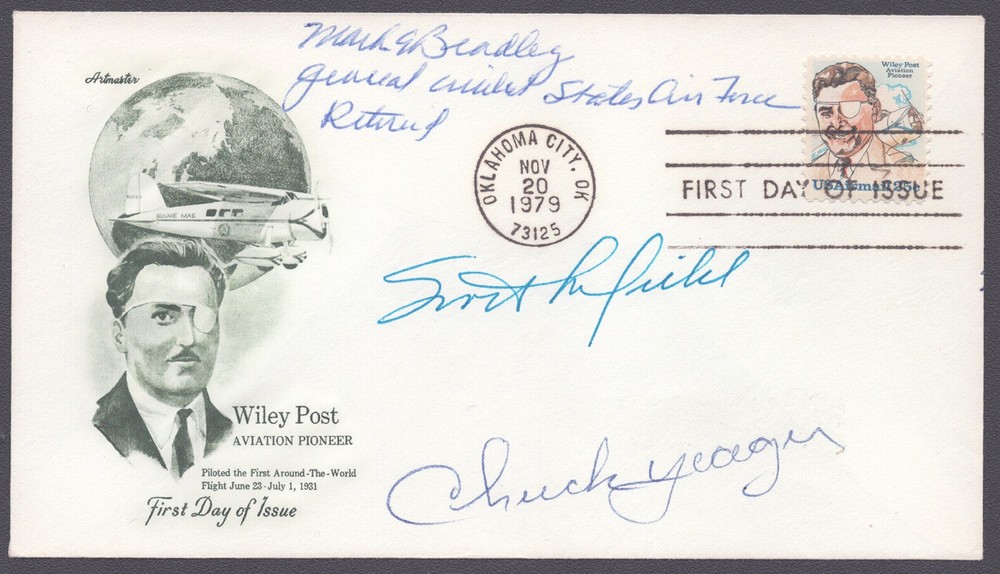 Artmaster
Mark E Bradley
General United States Air Force
Retired
Wiley Post
Aviation
Pioneer
USAirmail 25c
OKLAHOMA CITY, OK
NOV
20
1979
73125
FIRST DAY OF ISSUE
WINNIE MAE
Scott Crossfield
Chuck Yeager
Wiley Post
AVIATION PIONEER
Piloted the First Around-The-World
Flight June 23 - July 1, 1931
First Day of Issue